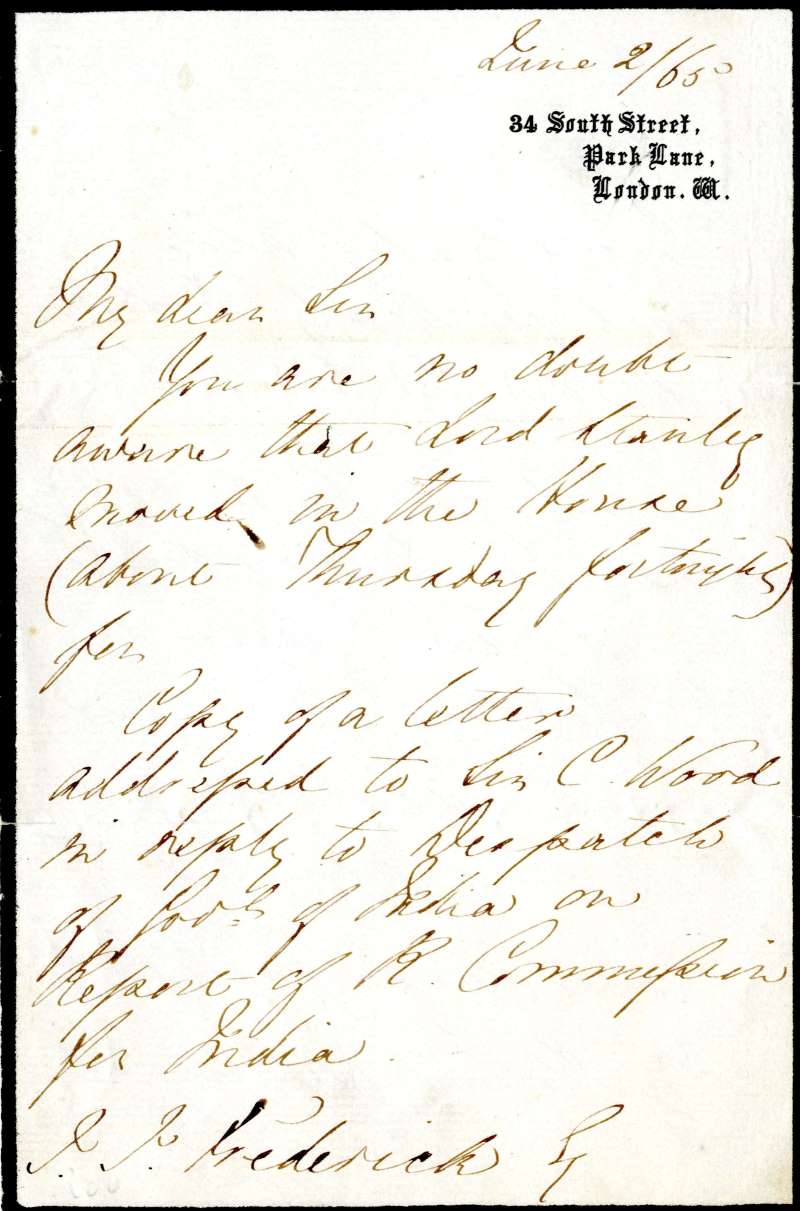 June 2/65
34 South Street,
Park Lane,
London. W.
My dear Sir
You are no doubt
aware that Lord Stanley
moved in the House
(about Thursday fortnight)
for
Copy of a letter
addressed to Sir C. Wood
in reply to Despatch
of Govt of India on
Report of R. Commission
for India
J. J. Frederick Esq